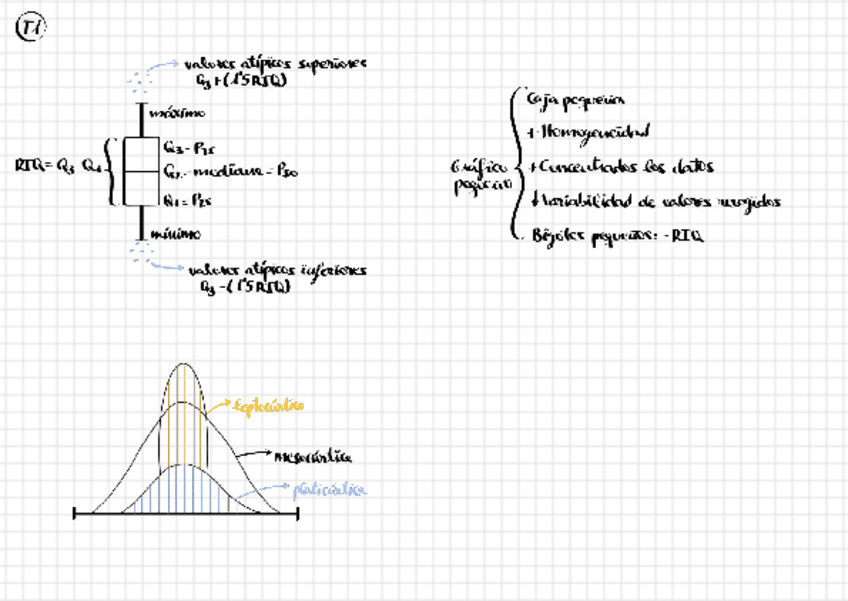 T.1
valores atípicos superiores
Q3 + (1'5 RIQ)
máximo
Q3 = P75
RIQ = Q3 - Q1
Q2 = mediana = P50
Q1 = P25
mínimo
valores atípicos inferiores
Q3 - (1'5 RIQ)
Gráfico
pequeño
Caja pequeña
+ Homogeneidad
+ Concentrados los datos
↓ Variabilidad de valores recogidos
Bigotes pequeños: - RIQ
leptocúrtica
mesocúrtica
platicúrtica